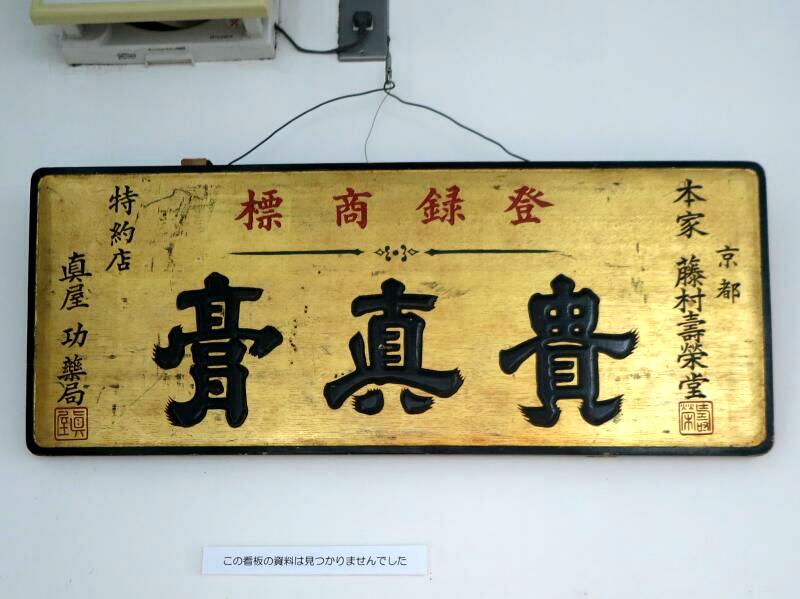 登録商標
貴真膏
京都
本家 藤村壽榮堂
壽榮
特約店
眞屋功藥局
眞屋
この看板の資料は見つかりませんでした